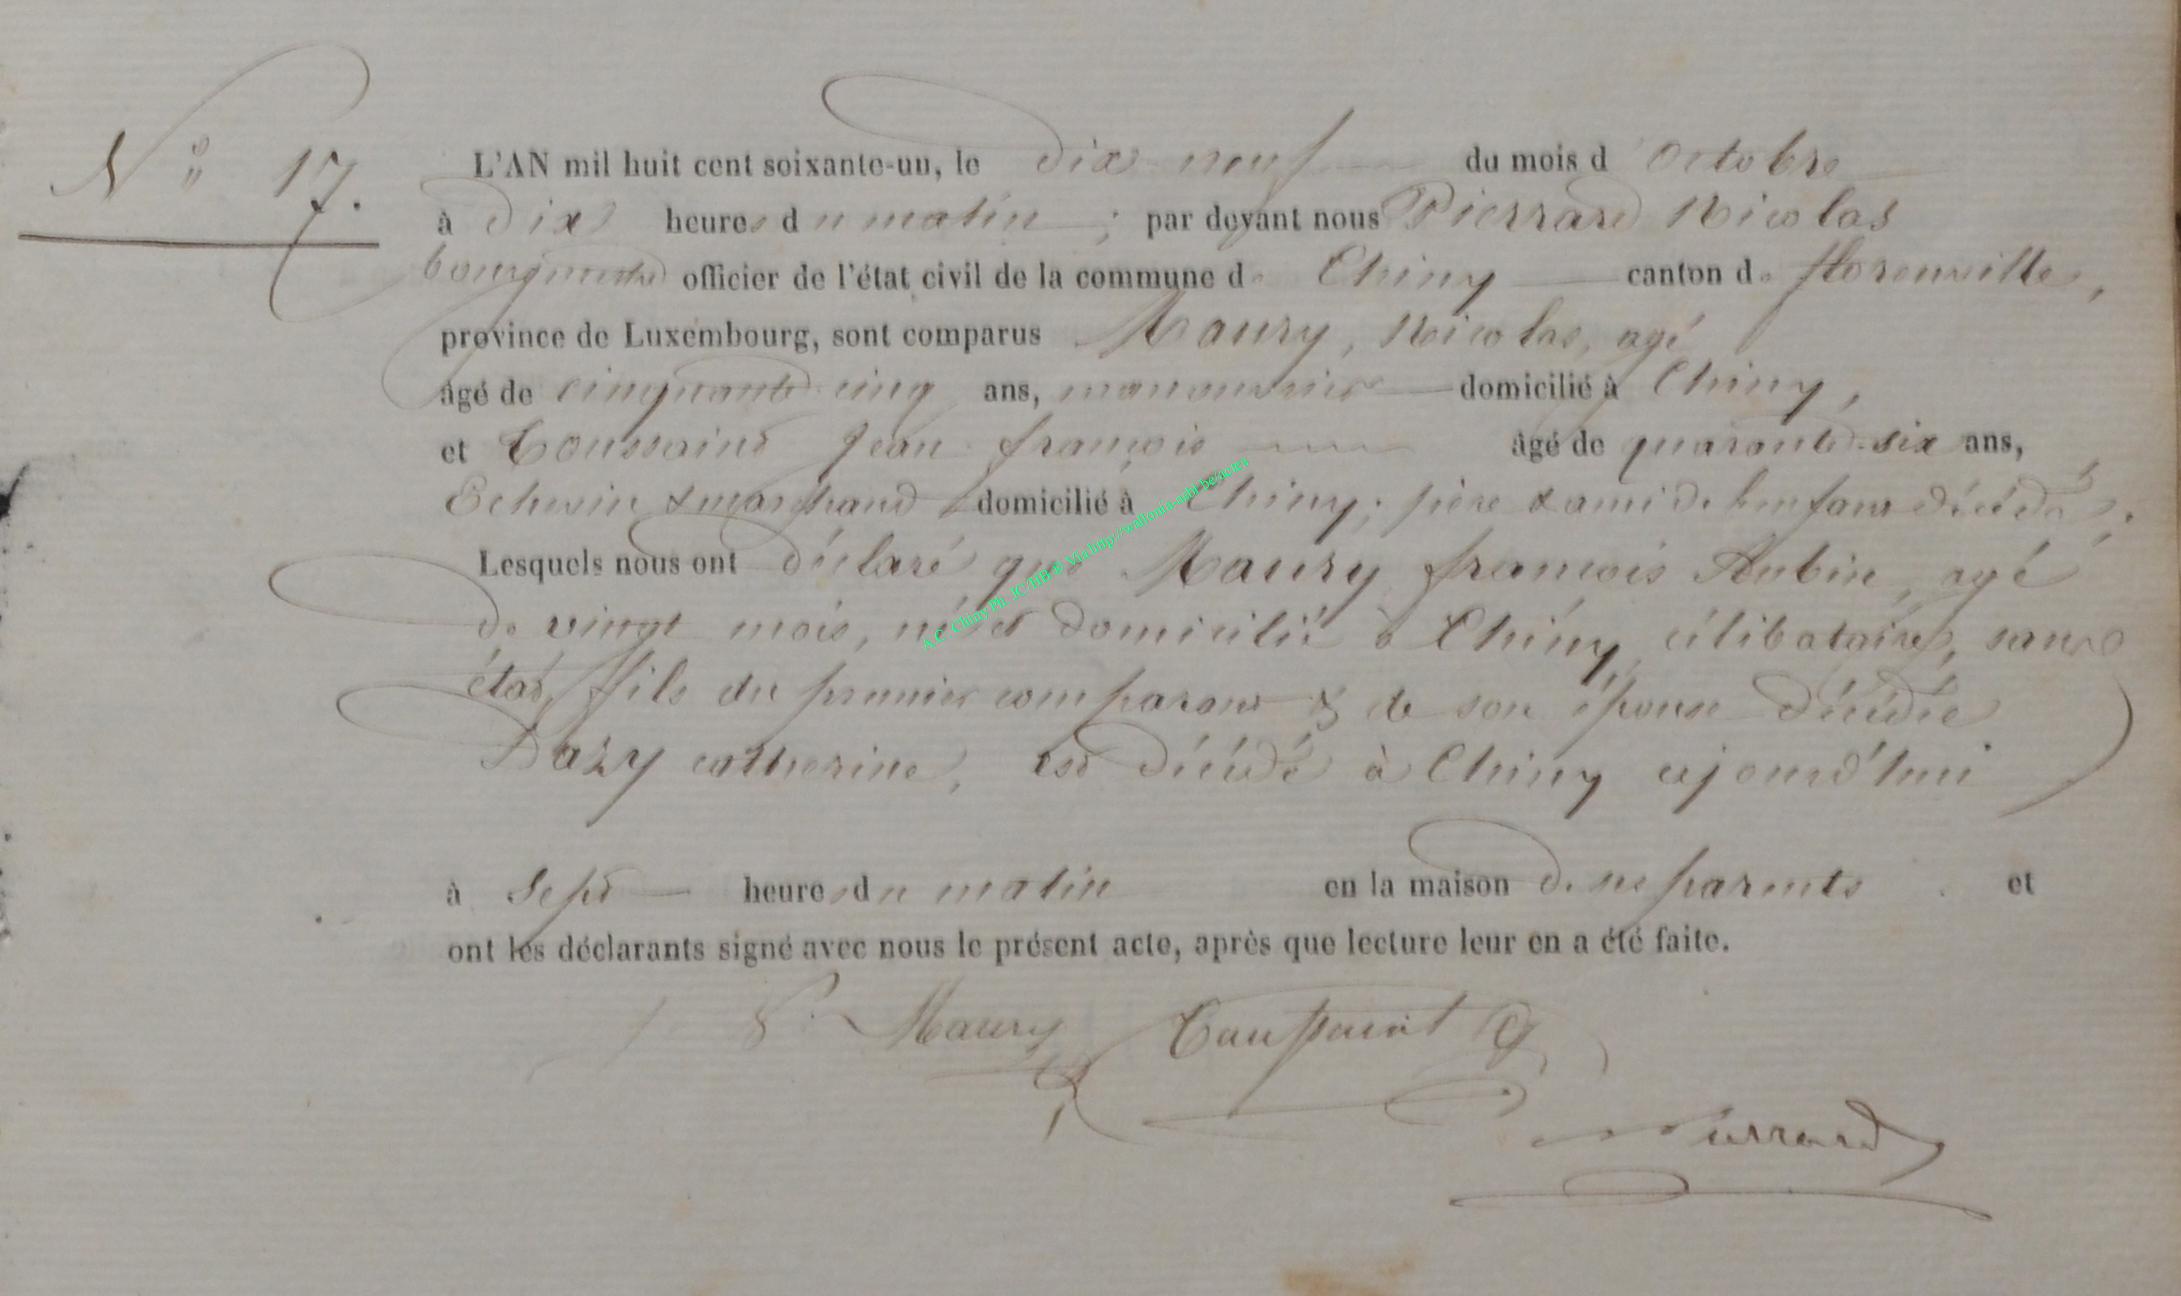 N° 17.
L'AN mil huit cent soixante-un, le dix neuf du mois d'Octobre
à dix heures du matin ; par devant nous Pierrard Nicolas
bourgmestre officier de l'état civil de la commune de Chiny canton de florenville,
province de Luxembourg, sont comparus Maury, Nicolas, agé
âgé de cinquante cinq ans, manouvrier domicilié à Chiny,
et Toussaint Jean françois âgé de quarante-six ans,
Echevin & marchand domicilié à Chiny; père & ami de l'enfant décédé;
Lesquels nous ont déclaré que Maury françois Aubin, agé
de vingt mois, né et domicilié à Chiny, célibataire, sans
état, fils du premier comparant & de son épouse décédée
Dazy catherine, est décédé à Chiny cejourd'hui
à Sept heures du matin en la maison de ses parents et
ont les déclarants signé avec nous le présent acte, après que lecture leur en a été faite.
Maury Toussaint
Pierrard
A.C. Chiny Ph. JC/HB @ Via http://wallonia-asbl.be/acora